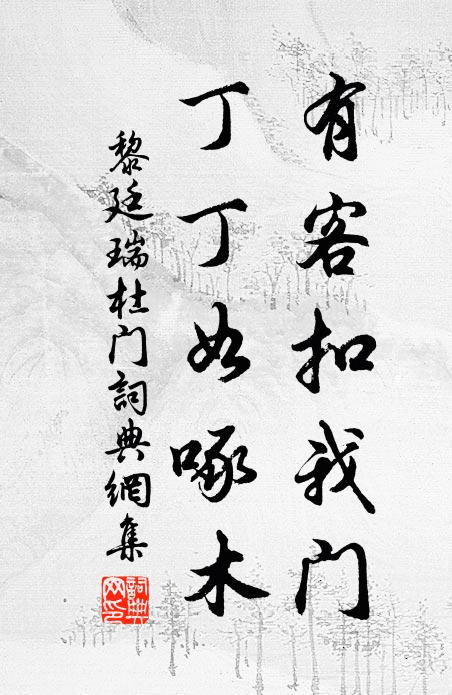 有客扣我门
丁丁如啄木
黎廷瑞杜门詞典網集
詞典網印